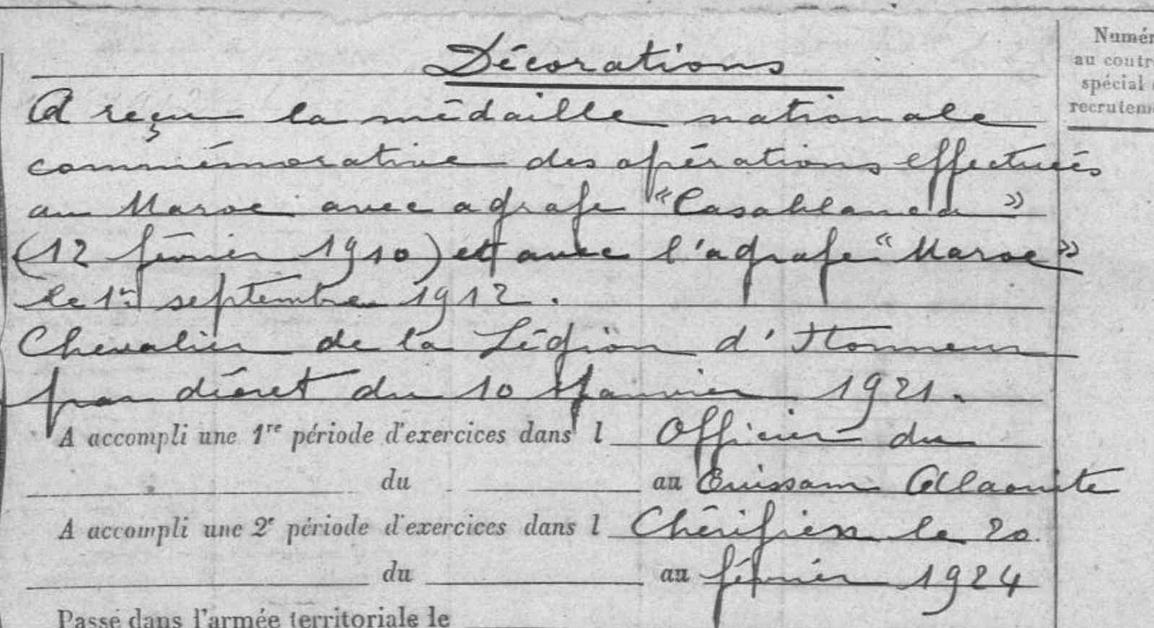 Décorations
A reçu la médaille nationale
commémorative des opérations effectuées
au Maroc avec agrafe "Casablanca"
(12 février 1910) et avec l'agrafe "Maroc"
le 1er septembre 1912.
Chevalier de la Légion d'Honneur
par décret du 10 Janvier 1921.
A accompli une 1re période d'exercices dans l Officier du
du au Ouissam Alaouite
A accompli une 2e période d'exercices dans l Chérifien le 20
du au février 1924
Passé dans l'armée territoriale le
Numér
au contr
spécial
recrutem